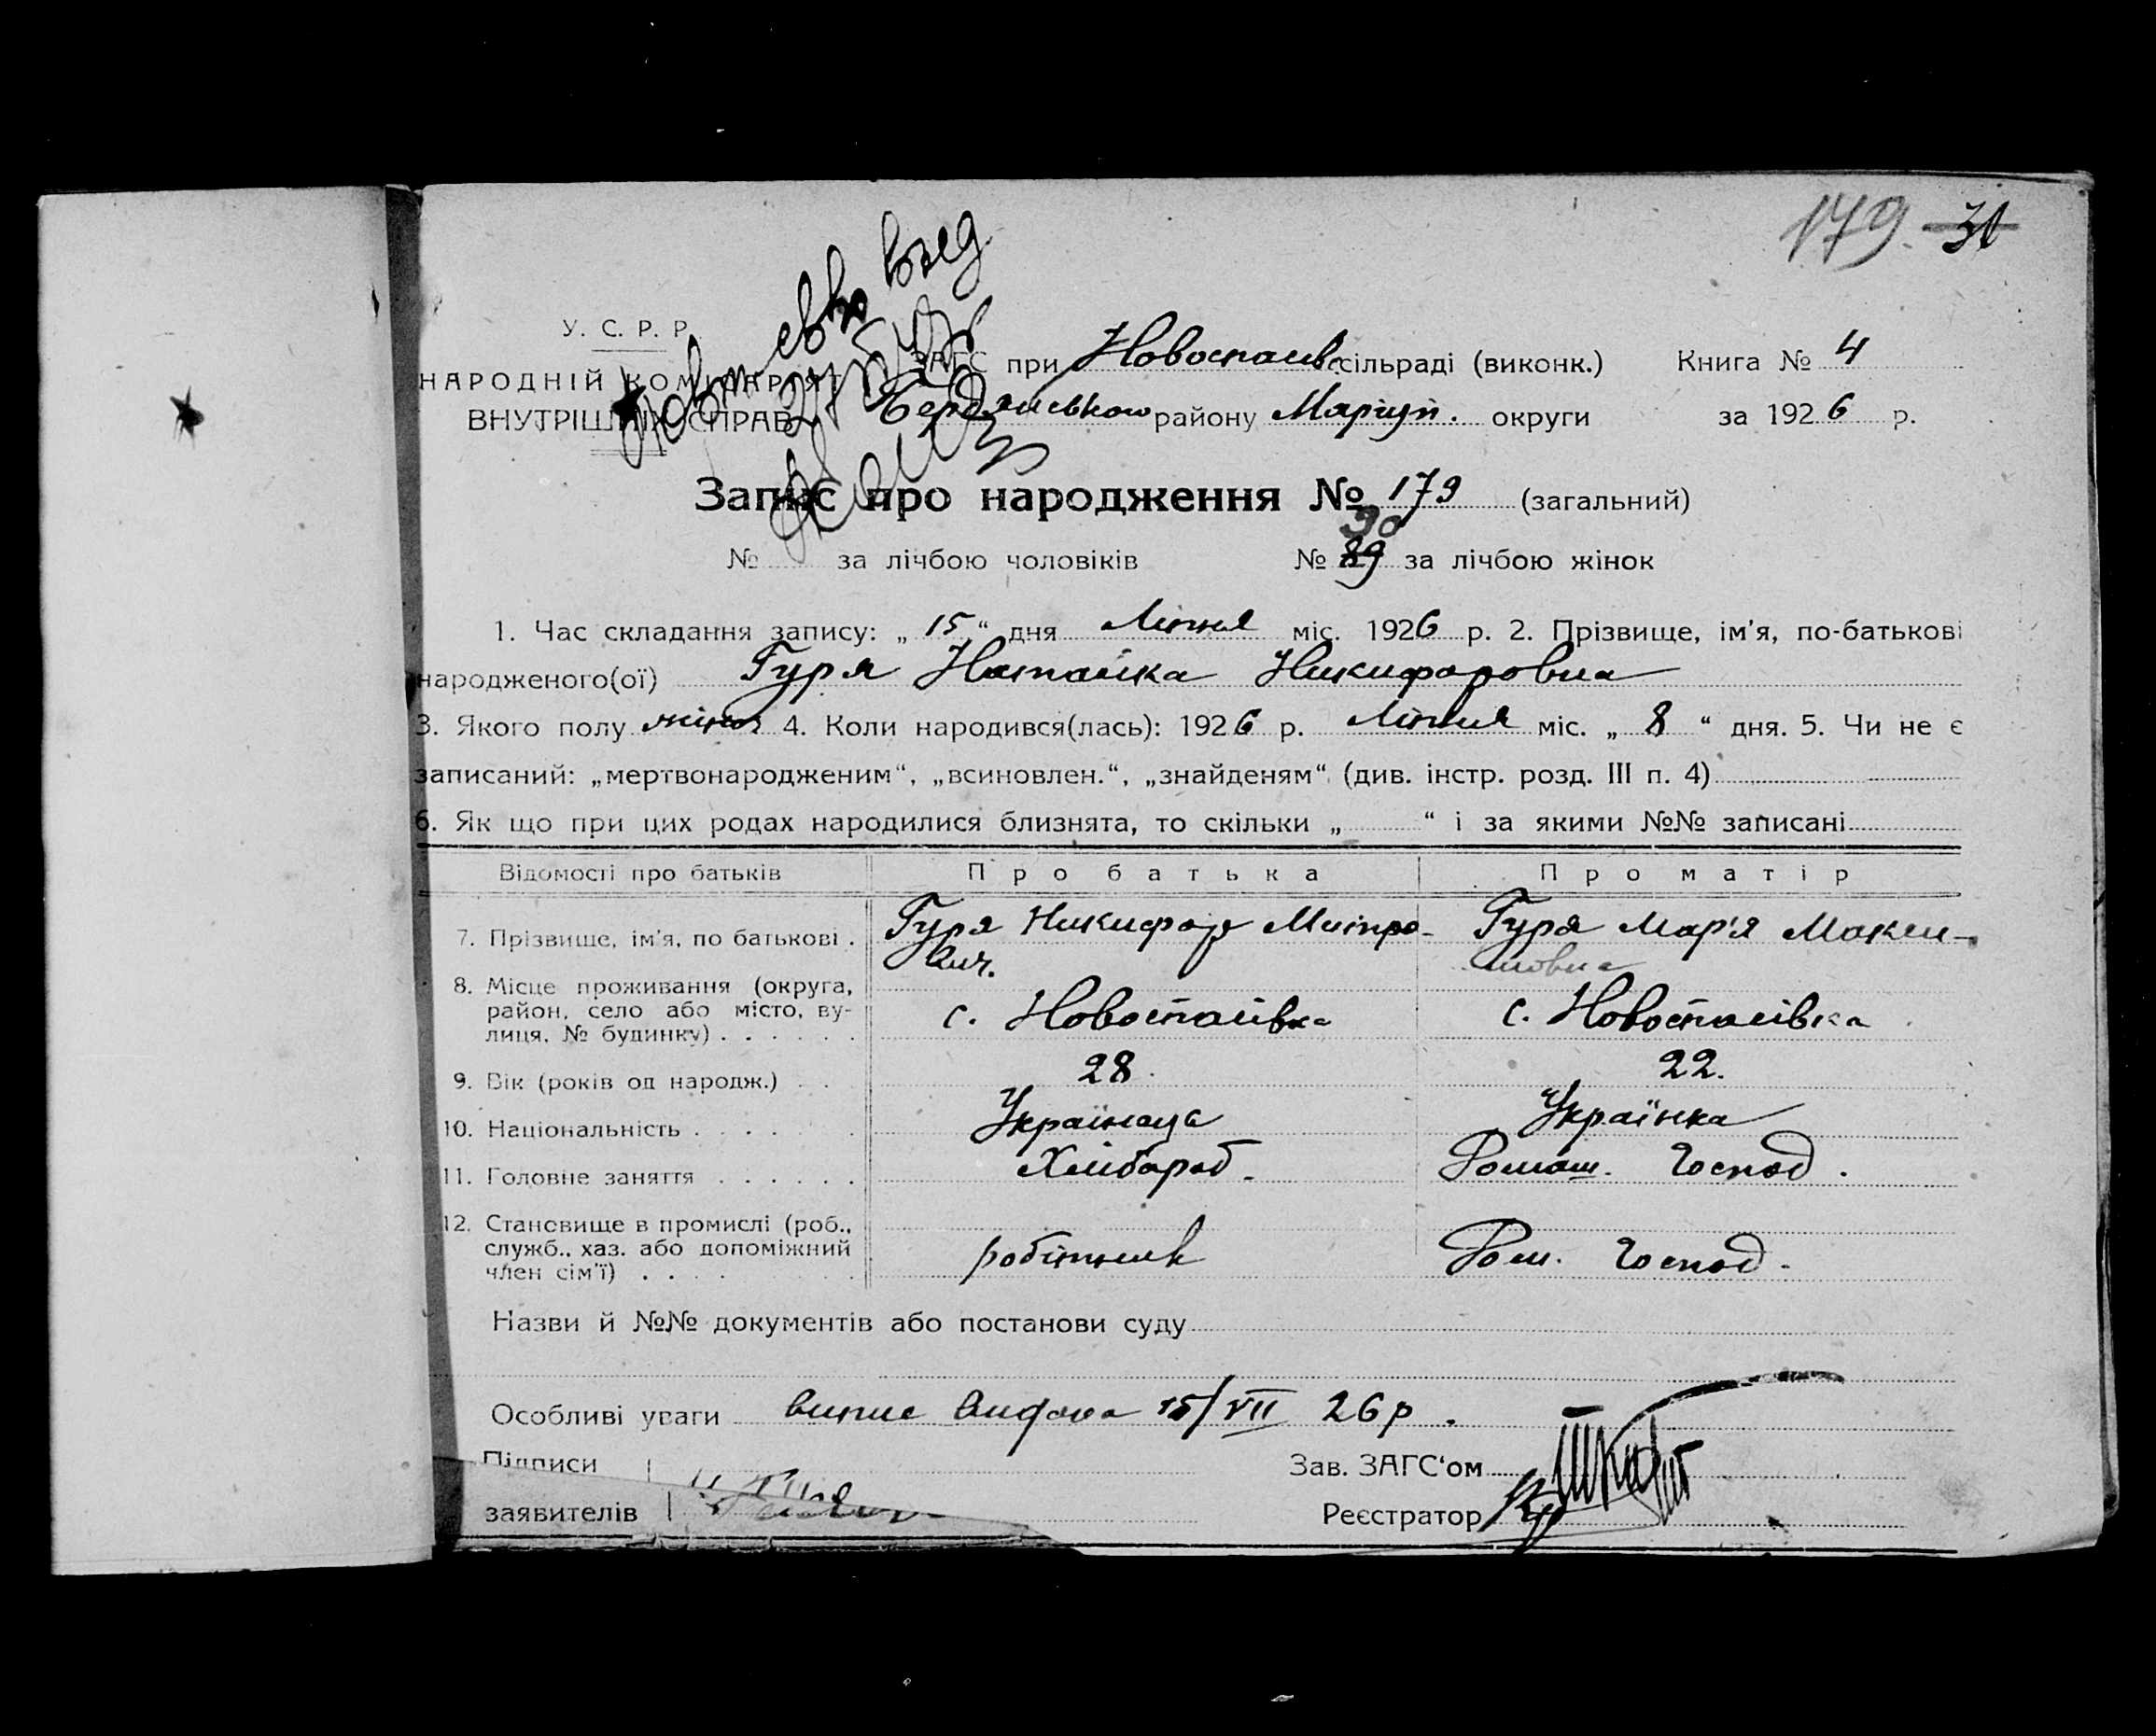 179. 31
У. С. Р. Р.
НАРОДНІЙ КОМІСАРІЯТ
ВНУТРІШНІХ СПРАВ
ЗАГС при Новоспасів. сільраді (виконк.) Книга № 4
Бердянського району Маріуп. округи за 1926 р.
Запис про народження № 179 (загальний)
90
№ за лічбою чоловіків № 89 за лічбою жінок
1. Час складання запису: „ 15 “ дня Липня міс. 1926 р. 2. Прізвище, ім'я, по-батькові
народженого(ої) Гуря Наталка Никифоровна
3. Якого полу жіноч 4. Коли народився(лась): 1926 р. Липня міс. „ 8 “ дня. 5. Чи не є
записаний: „мертвонародженим“, „всиновлен.“, „знайденям“ (див. інстр. розд. III п. 4)
6. Як що при цих родах народилися близнята, то скільки „ “ і за якими №№ записані
Відомості про батьків Про батька Про матір
7. Прізвище, ім'я, по батькові . Гуря Никифор Митро- Гуря Мар'я Макси-
вич. мовна
8. Місце проживання (округа,
район, село або місто, ву- с. Новоспасівка с. Новоспасівка
лиця, № будинку) . . . . . .
9. Вік (років од народж.) . . 28. 22.
10. Національність . . . . . Українець Українка
11. Головне заняття . . . . . . Хлібороб. Домаш. Господ.
12. Становище в промислі (роб.,
служб., хаз. або допоміжний робітник Дом. Господ.
член сім'ї) . . . .
Назви й №№ документів або постанови суду
Особливі уваги випис видана 15/VII 26 р.
Підписи Зав. ЗАГС'ом
заявителів Реєстратор